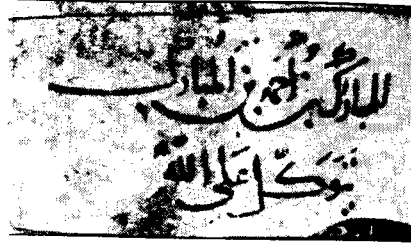 للمبارك بن أحمد بن المبارك
توكل على الله